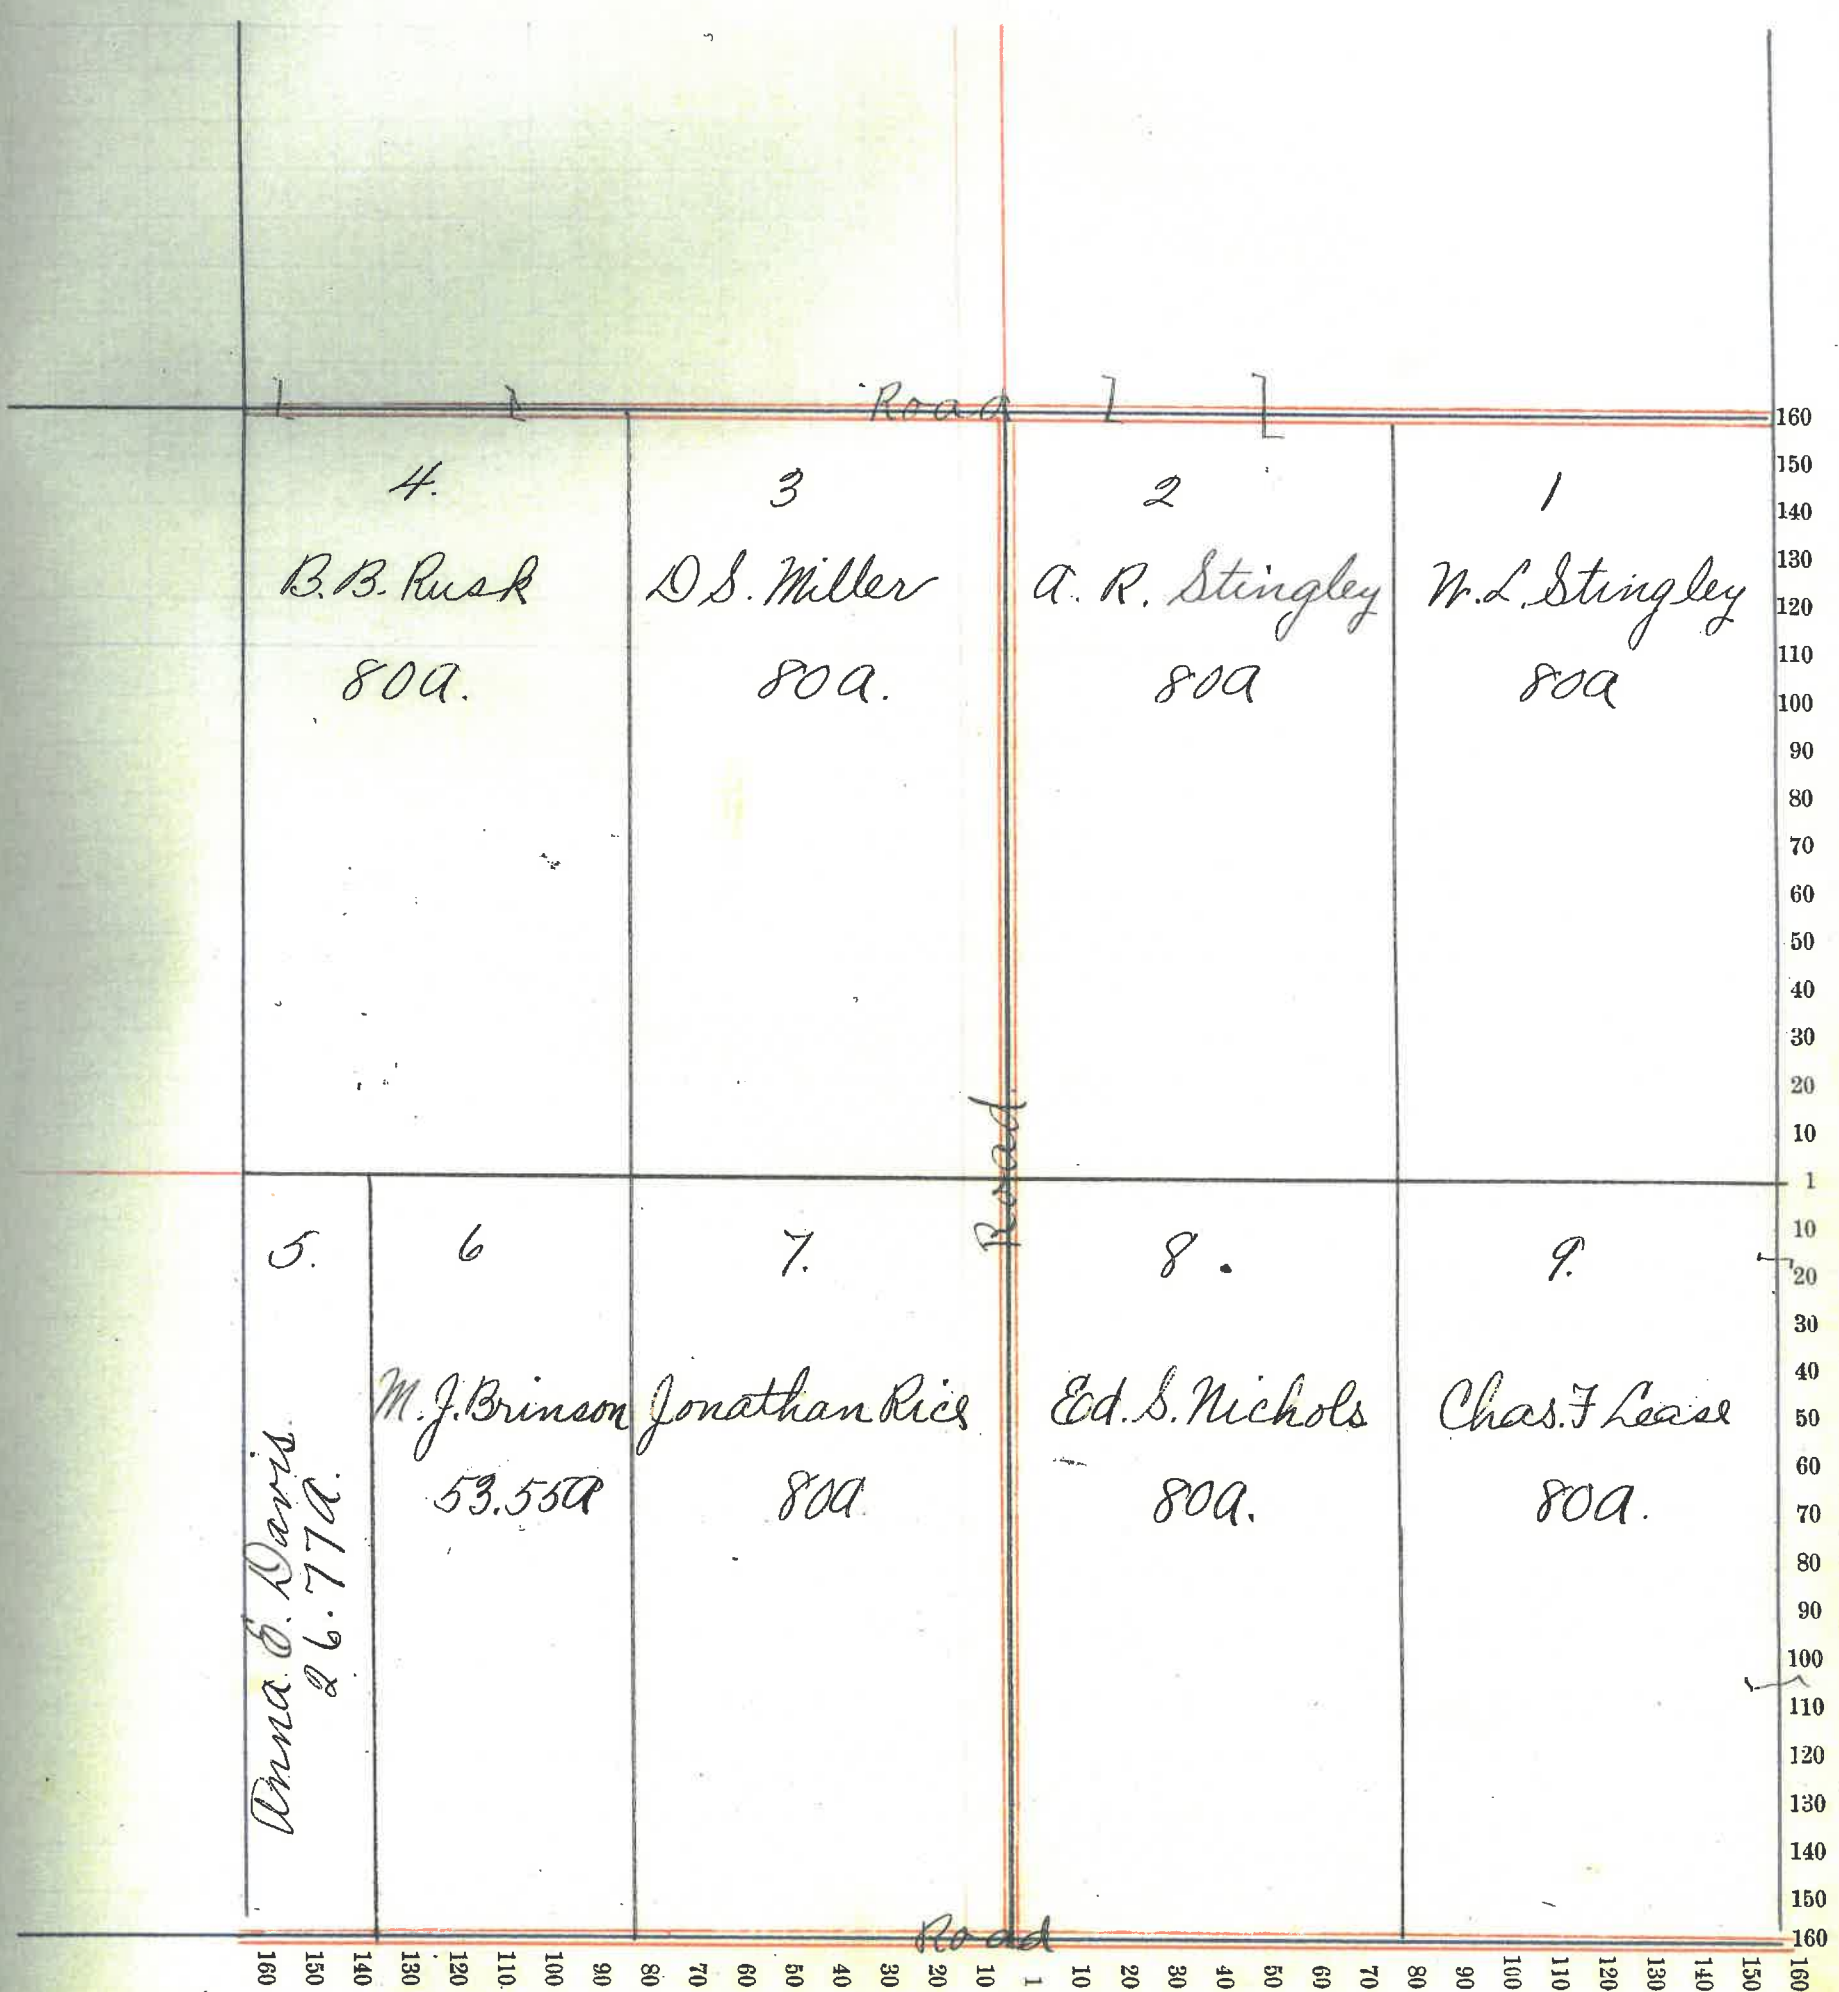 Road
4.
B.B. Rusk
80a.
3
D S. Miller
80a.
2
A. R. Stingley
80a
1
W. L. Stingley
80a
Road
5.
Anna E. Davis
26.77a.
6
M. J. Brinson
53.55a
7.
Jonathan Rice
80a
8.
Ed. S. Nichols
80a.
9.
Chas. F Lease
80a.
Road
160
150
140
130
120
110
100
90
80
70
60
50
40
30
20
10
1
10
20
30
40
50
60
70
80
90
100
110
120
130
140
150
160
160 150 140 130 120 110 100 90 80 70 60 50 40 30 20 10 1 10 20 30 40 50 60 70 80 90 100 110 120 130 140 150 160